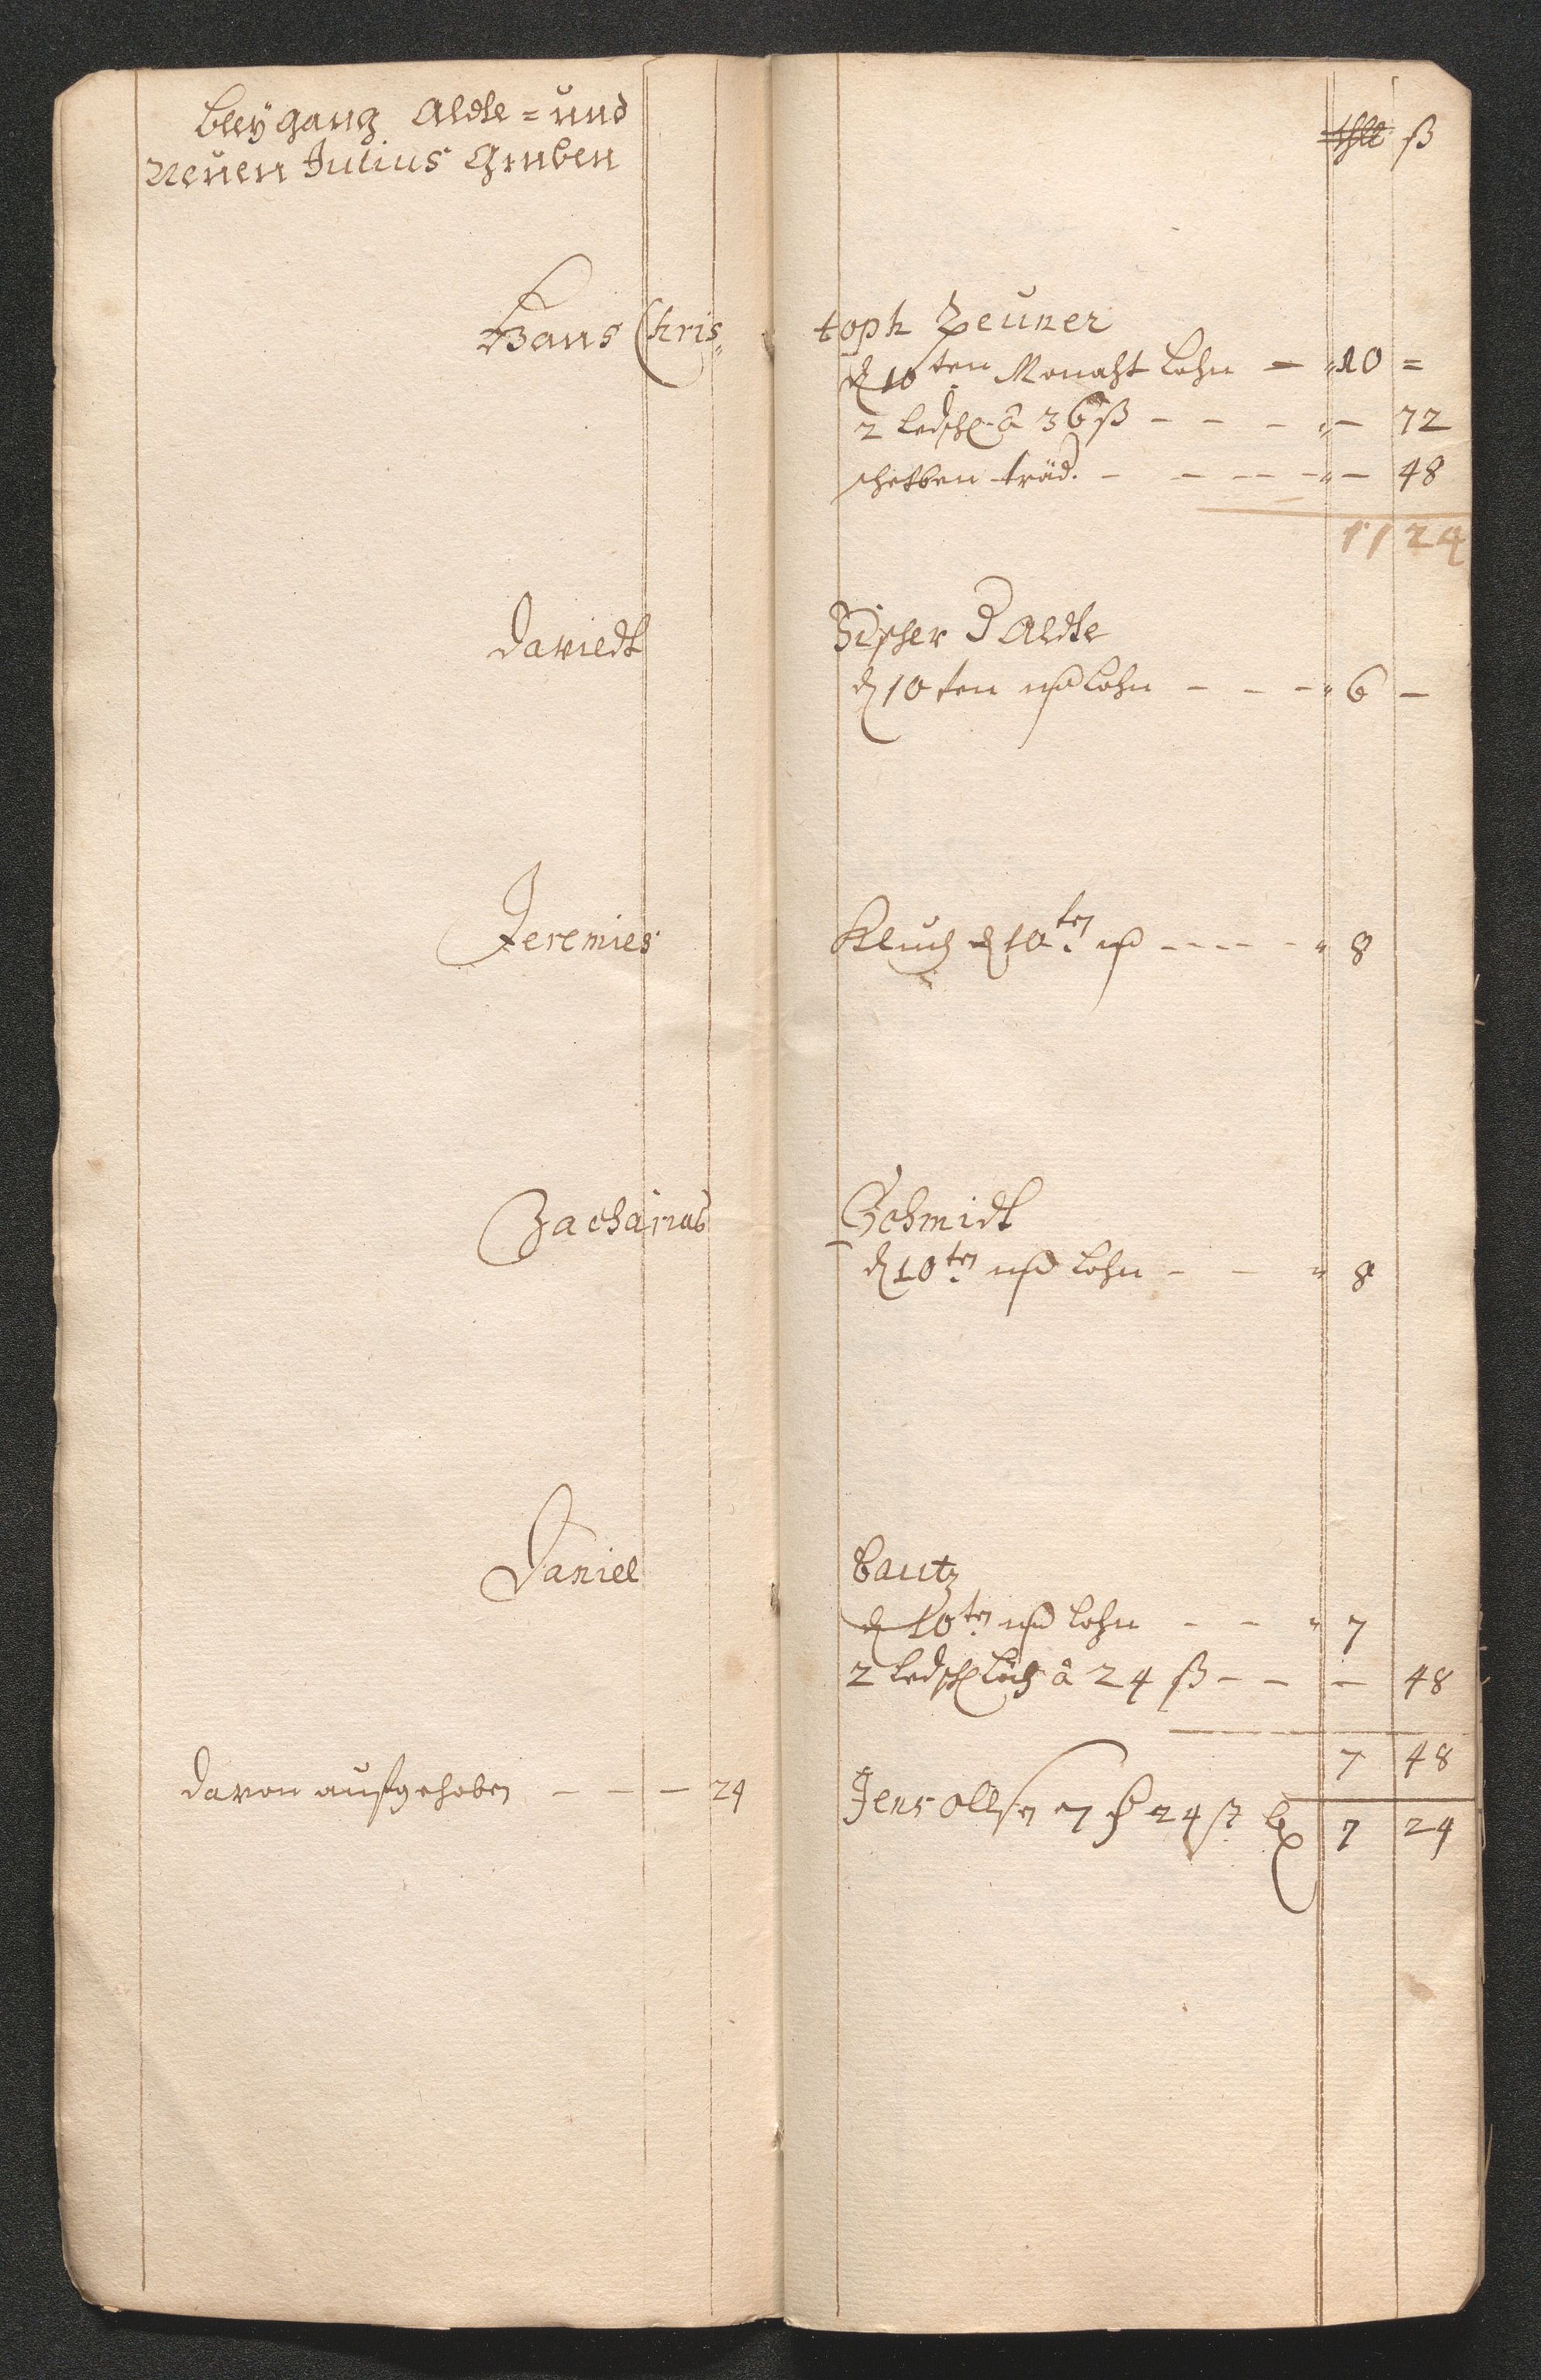 Bleygang Aldte = und
Neuen Julius Gruben
thlr ß
Hans Chris„
toph Zeuner
d 10ten Monaht Lohn — „ 10 =
2 ledsch à 36 ß - - - „ — 72
scheiben träd. - - - - „ — 48
11 24
Daviedt
Discher d Aldte
d 10 ten Lohn - - - „ 6 —
Jeremies
Kluch d 10ten - - - - „ 8
Zacharias
Schmidt
d 10ten Lohn - - „ 8
Daniel
Bautz
d 10ten Lohn - - „ 7
2 ledsch à 24 ß - - — 48
7 48
davon aufgehoben - - - 24
Jens Ollsen 24 ß 7 24